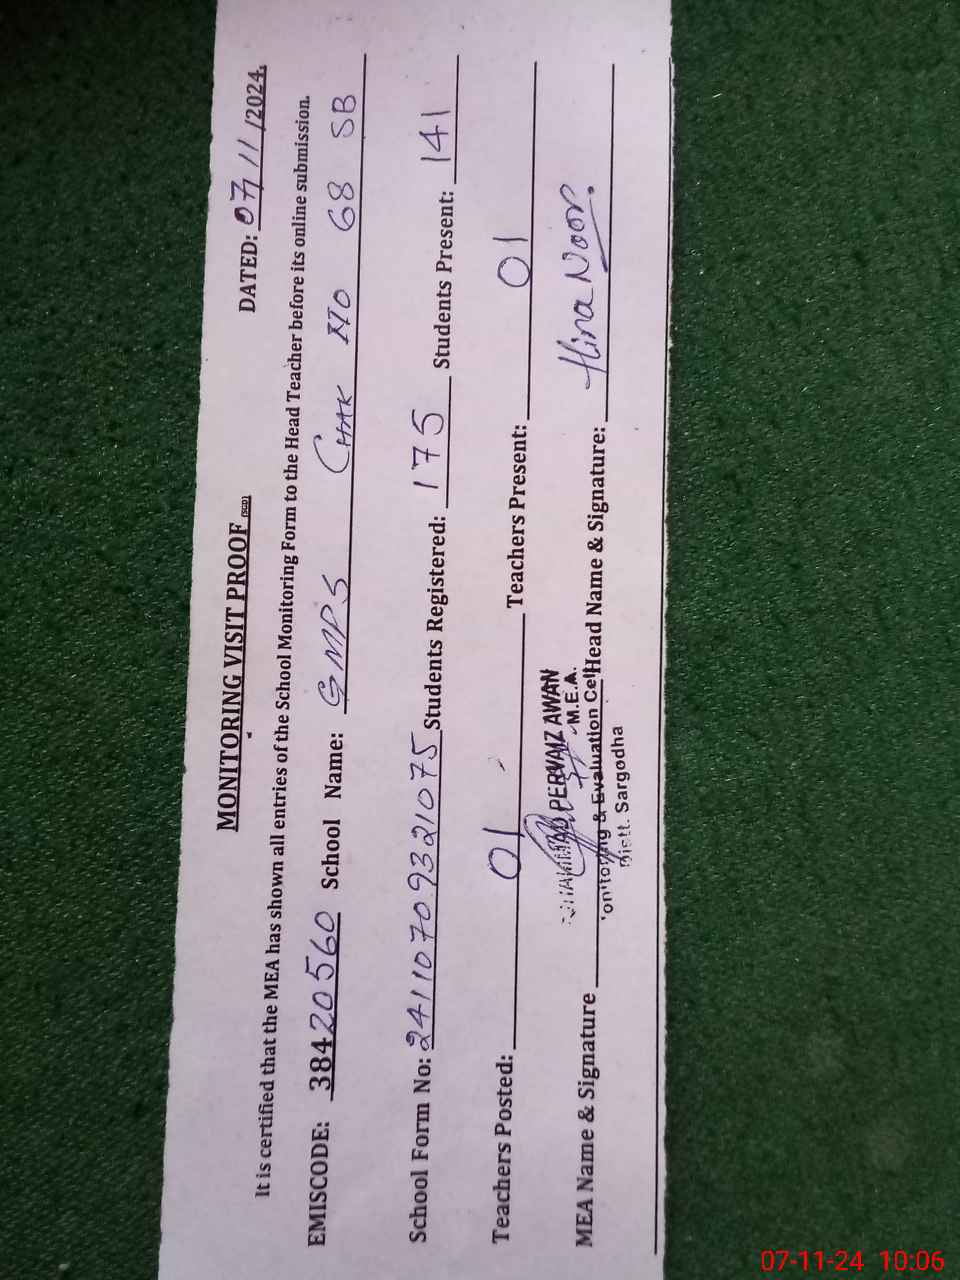 MONITORING VISIT PROOF (SGD)
DATED: 07/11/2024.
It is certified that the MEA has shown all entries of the School Monitoring Form to the Head Teacher before its online submission.
EMISCODE: 38420560 School Name: GMPS CHAK NO 68 SB
School Form No: 2411070 9321075 Students Registered: 175 Students Present: 141
Teachers Posted: 01 Teachers Present: 01
MEA Name & Signature Head Name & Signature: Hina Noor.
PERVAIZ AWAN
M.E.A.
& Evaluation Cell
Distt. Sargodha
07-11-24 10:06